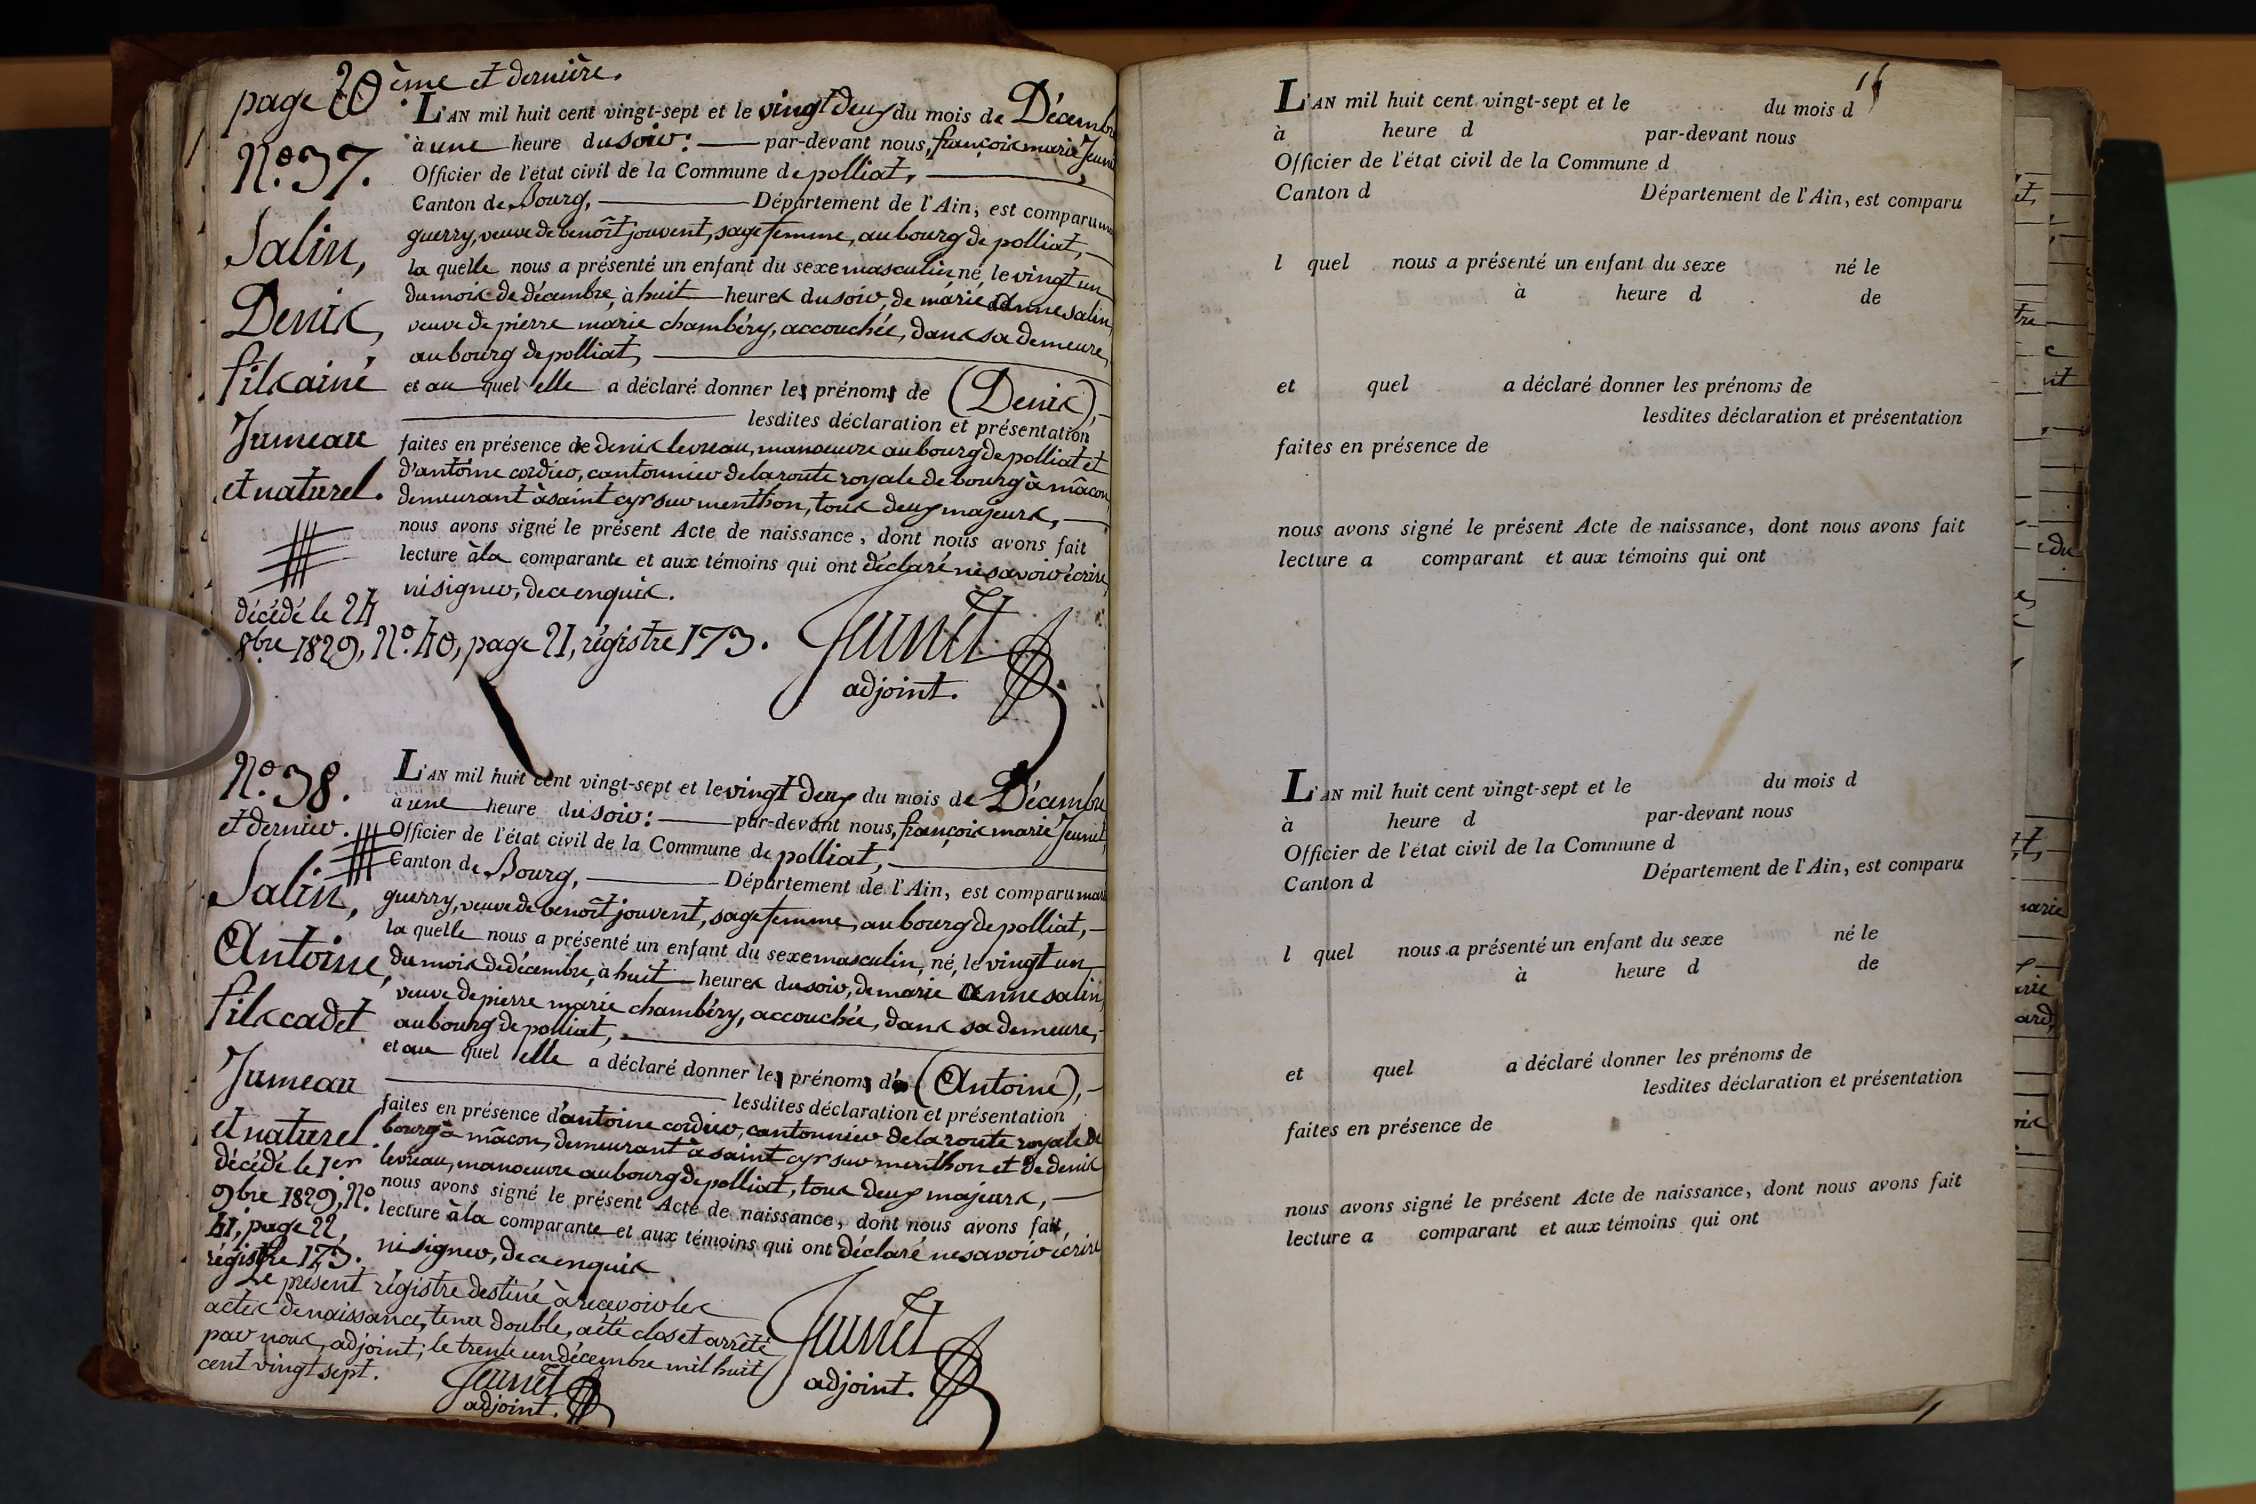 page 20ème et dernière.
L'AN mil huit cent vingt-sept et le vingt deux du mois de Décembre
à une heure du soir: par-devant nous, françois marie Jeunet
N.o 37.
Officier de l'état civil de la Commune de polliat,
Canton de Bourg, Département de l'Ain, est comparu
Salin,
guerry, veuve de benoît jouvent, sage femme, au bourg de polliat,
la quelle nous a présenté un enfant du sexe masculin né, le vingt un
Denis,
du mois de décembre, à huit heures du soir, de marie Anne salin,
veuve de pierre marie chambéry, accouchée, dans sa demeure,
fils ainé
au bourg de polliat,
et au quel elle a déclaré donner les prénoms de (Denis),
Jumeau
lesdites déclaration et présentation
faites en présence de denis levreau, manoeuvre au bourg de polliat et
et naturel.
d'antoine cordier, cantonnier de la route royale de bourg à mâcon,
demeurant à saint cyr sur menthon, tous deux majeurs,
nous avons signé le présent Acte de naissance, dont nous avons fait
lecture à la comparante et aux témoins qui ont déclaré ne savoir écrire,
ni signer, de ce enquis.
décédé le 24
8bre 1829, N.o 40, page 21, régistre 173.
Jeunet
adjoint.
N.o 38.
et dernier.
L'AN mil huit cent vingt-sept et le vingt deux du mois de Décembre
à une heure du soir: par-devant nous, françois marie Jeunet,
Officier de l'état civil de la Commune de polliat,
Canton de Bourg, Département de l'Ain, est comparu
Salin,
guerry, veuve de benoît jouvent, sage femme, au bourg de polliat,
la quelle nous a présenté un enfant du sexe masculin, né, le vingt un
Antoine,
du mois de décembre, à huit heures du soir, de marie Anne salin,
veuve de pierre marie chambéry, accouchée, dans sa demeure,
fils cadet
au bourg de polliat,
et au quel elle a déclaré donner les prénoms d' (Antoine),
Jumeau
lesdites déclaration et présentation
faites en présence d'antoine cordier, cantonnier de la route royale de
et naturel.
bourg à mâcon, demeurant à saint cyr sur menthon et de denis
levreau, manoeuvre au bourg de polliat, tous deux majeurs,
nous avons signé le présent Acte de naissance, dont nous avons fait
lecture à la comparante et aux témoins qui ont déclaré ne savoir écrire
ni signer, de ce enquis
décédé le 1er
9bre 1829, N.o
41, page 22,
régistre 173.
Le présent régistre destiné à recevoir les
actes de naissance, tenu double, a été clos et arrêté
par nous, adjoint; le trente un décembre mil huit
cent vingt sept.
Jeunet
adjoint.
Jeunet
adjoint.
L'AN mil huit cent vingt-sept et le du mois d
à heure d par-devant nous
Officier de l'état civil de la Commune d
Canton d Département de l'Ain, est comparu
l quel nous a présenté un enfant du sexe né le
à heure d de
et quel a déclaré donner les prénoms de
lesdites déclaration et présentation
faites en présence de
nous avons signé le présent Acte de naissance, dont nous avons fait
lecture a comparant et aux témoins qui ont
L'AN mil huit cent vingt-sept et le du mois d
à heure d par-devant nous
Officier de l'état civil de la Commune d
Canton d Département de l'Ain, est comparu
l quel nous a présenté un enfant du sexe né le
à heure d de
et quel a déclaré donner les prénoms de
lesdites déclaration et présentation
faites en présence de
nous avons signé le présent Acte de naissance, dont nous avons fait
lecture a comparant et aux témoins qui ont